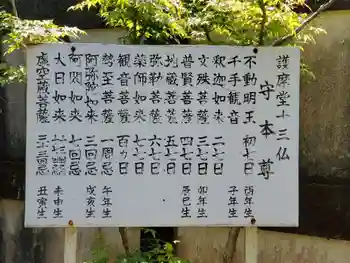 護摩堂十三仏
守本尊
不動明王 初七日 酉年生
千手観音 子年生
釈迦如来 二七日
文殊菩薩 三七日 卯年生
普賢菩薩 四七日 辰巳生
地蔵菩薩 五七日
弥勒菩薩 六七日
薬師如来 七七日
観音菩薩 百ケ日
勢至菩薩 一周忌 午年生
阿弥陀如来 三回忌 戌亥生
阿閦如来 七回忌
大日如来 十三回忌 未申生
虚空蔵菩薩 三十三忌 丑寅生